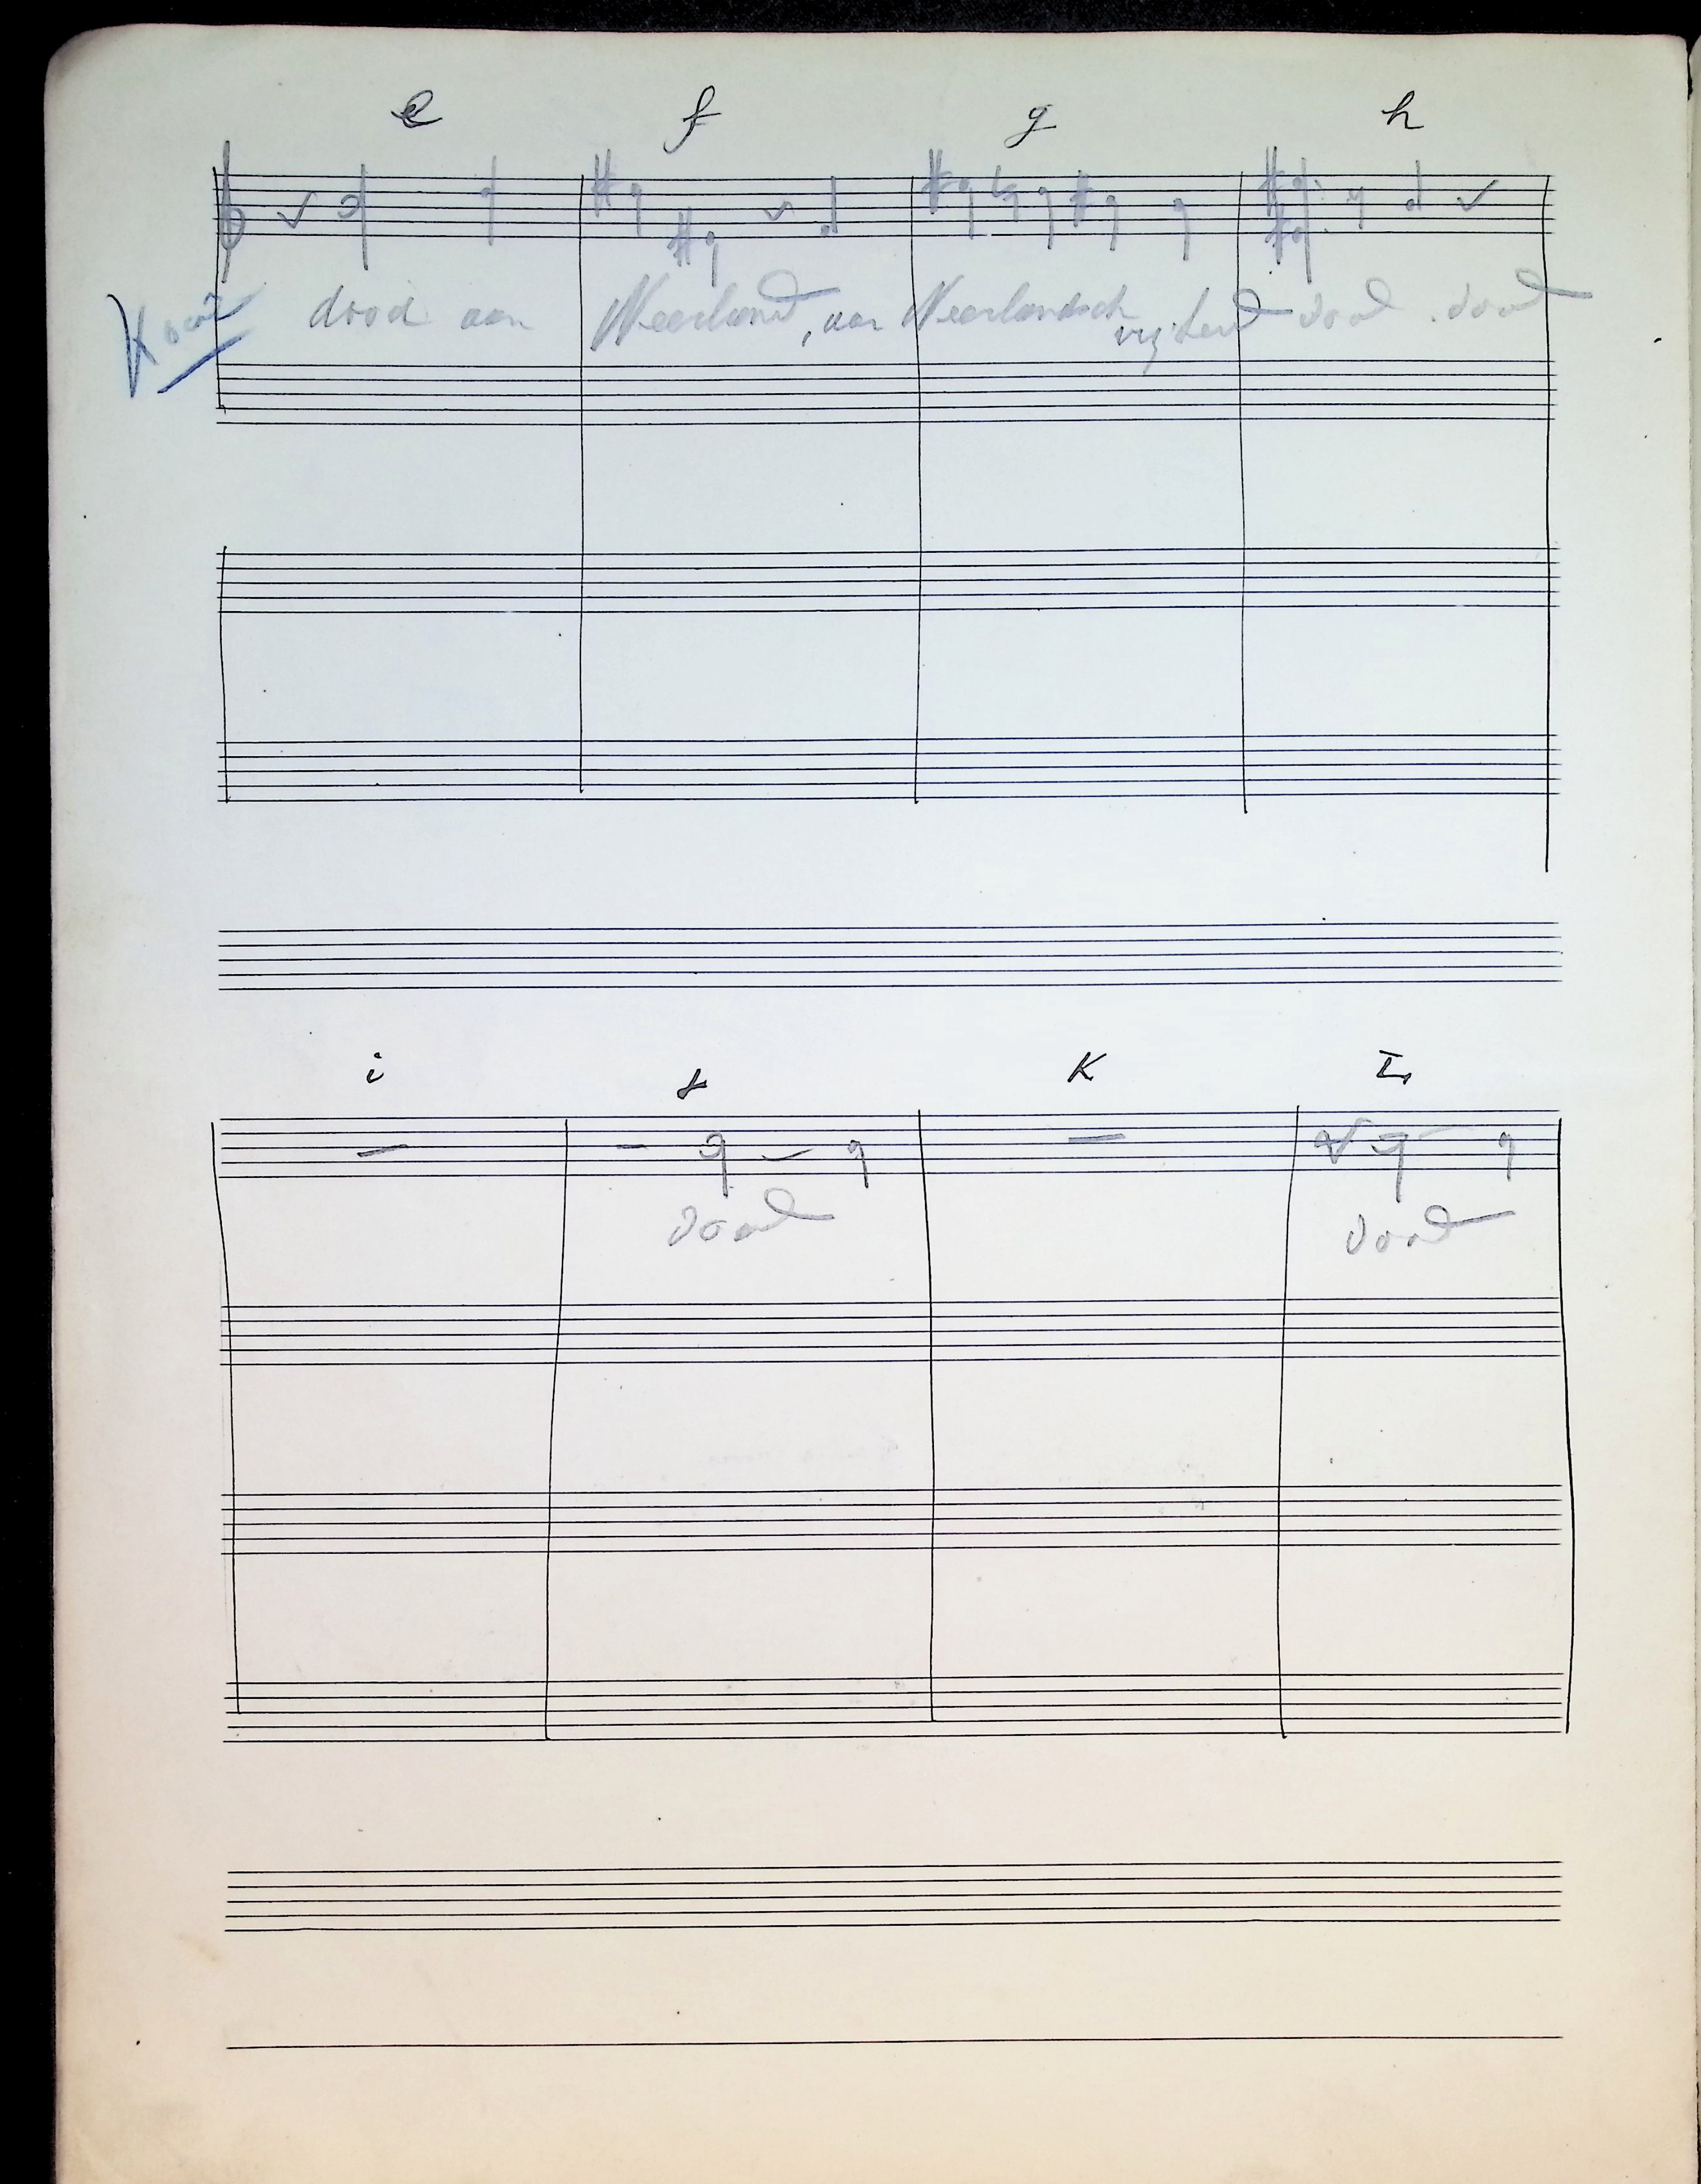 e f g h
Koor
dood aan Neerland, aan Neerlandsch vrijheid dood. dood
i j K L
dood dood